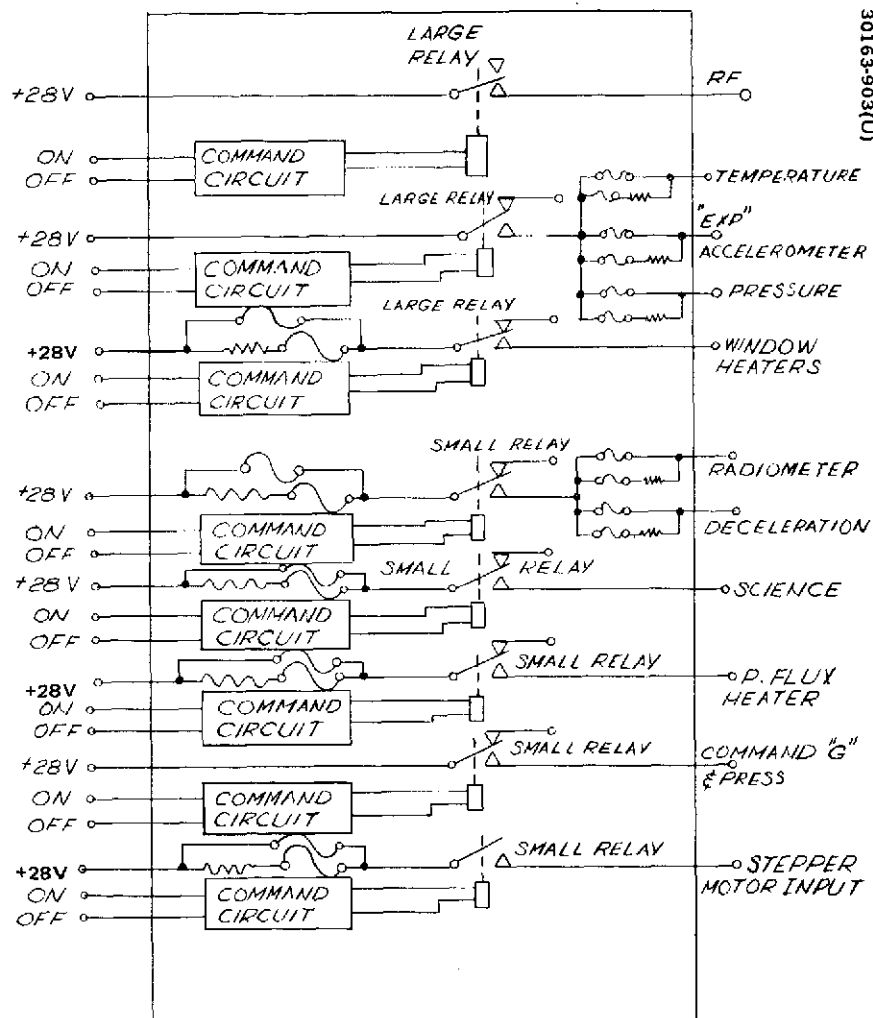 30163-903(U)
LARGE
RELAY
+28V
RF
ON
OFF
COMMAND
CIRCUIT
TEMPERATURE
LARGE RELAY
"EXP"
+28V
ACCELEROMETER
ON
OFF
COMMAND
CIRCUIT
PRESSURE
LARGE RELAY
+28V
WINDOW
HEATERS
ON
OFF
COMMAND
CIRCUIT
SMALL RELAY
RADIOMETER
+28V
DECELERATION
ON
OFF
COMMAND
CIRCUIT
+28V
SMALL RELAY
SCIENCE
ON
OFF
COMMAND
CIRCUIT
SMALL RELAY
+28V
P. FLUX
HEATER
ON
OFF
COMMAND
CIRCUIT
SMALL RELAY
COMMAND "G"
& PRESS
+28V
ON
OFF
COMMAND
CIRCUIT
SMALL RELAY
+28V
STEPPER
MOTOR INPUT
ON
OFF
COMMAND
CIRCUIT